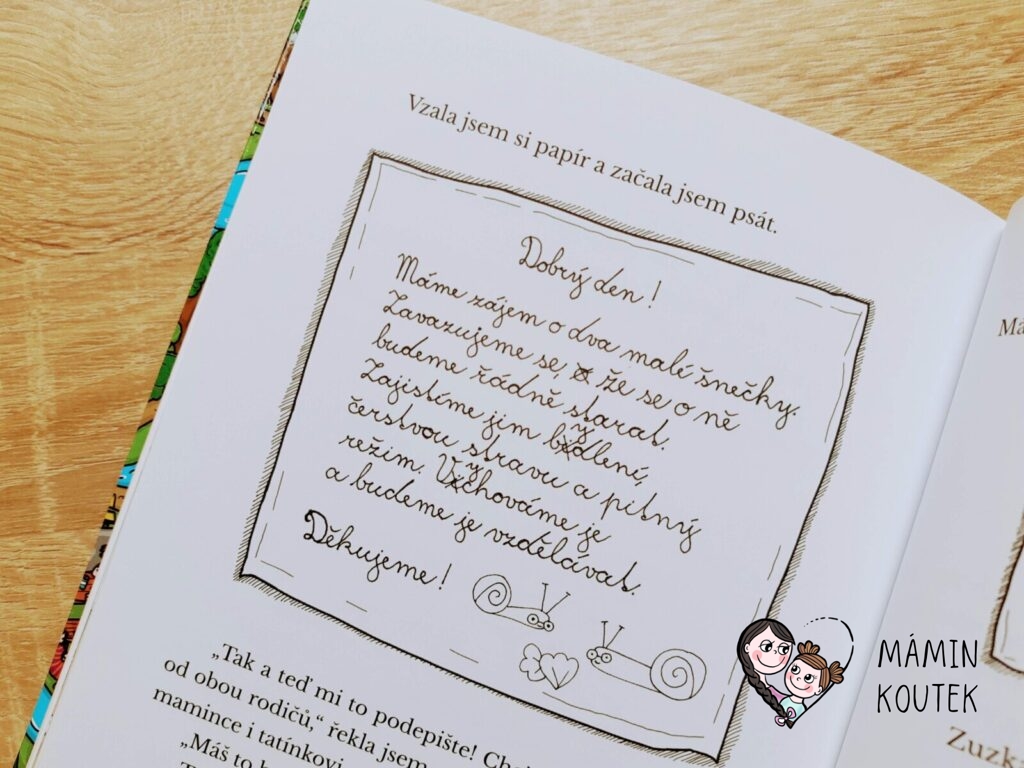 Vzala jsem si papír a začala jsem psát.
Dobrý den!
Máme zájem o dva malé šnečky.
Zavazujeme se, že se o ně
budeme řádně starat.
Zajistíme jim bydlení,
čerstvou stravu a pitný
režim. Vychováme je
a budeme je vzdělávat.
Děkujeme!
„Tak a teď mi to podepište!
od obou rodičů,“ řekla jsem
mamince i tatínkovi
„Máš to
MÁMIN
KOUTEK